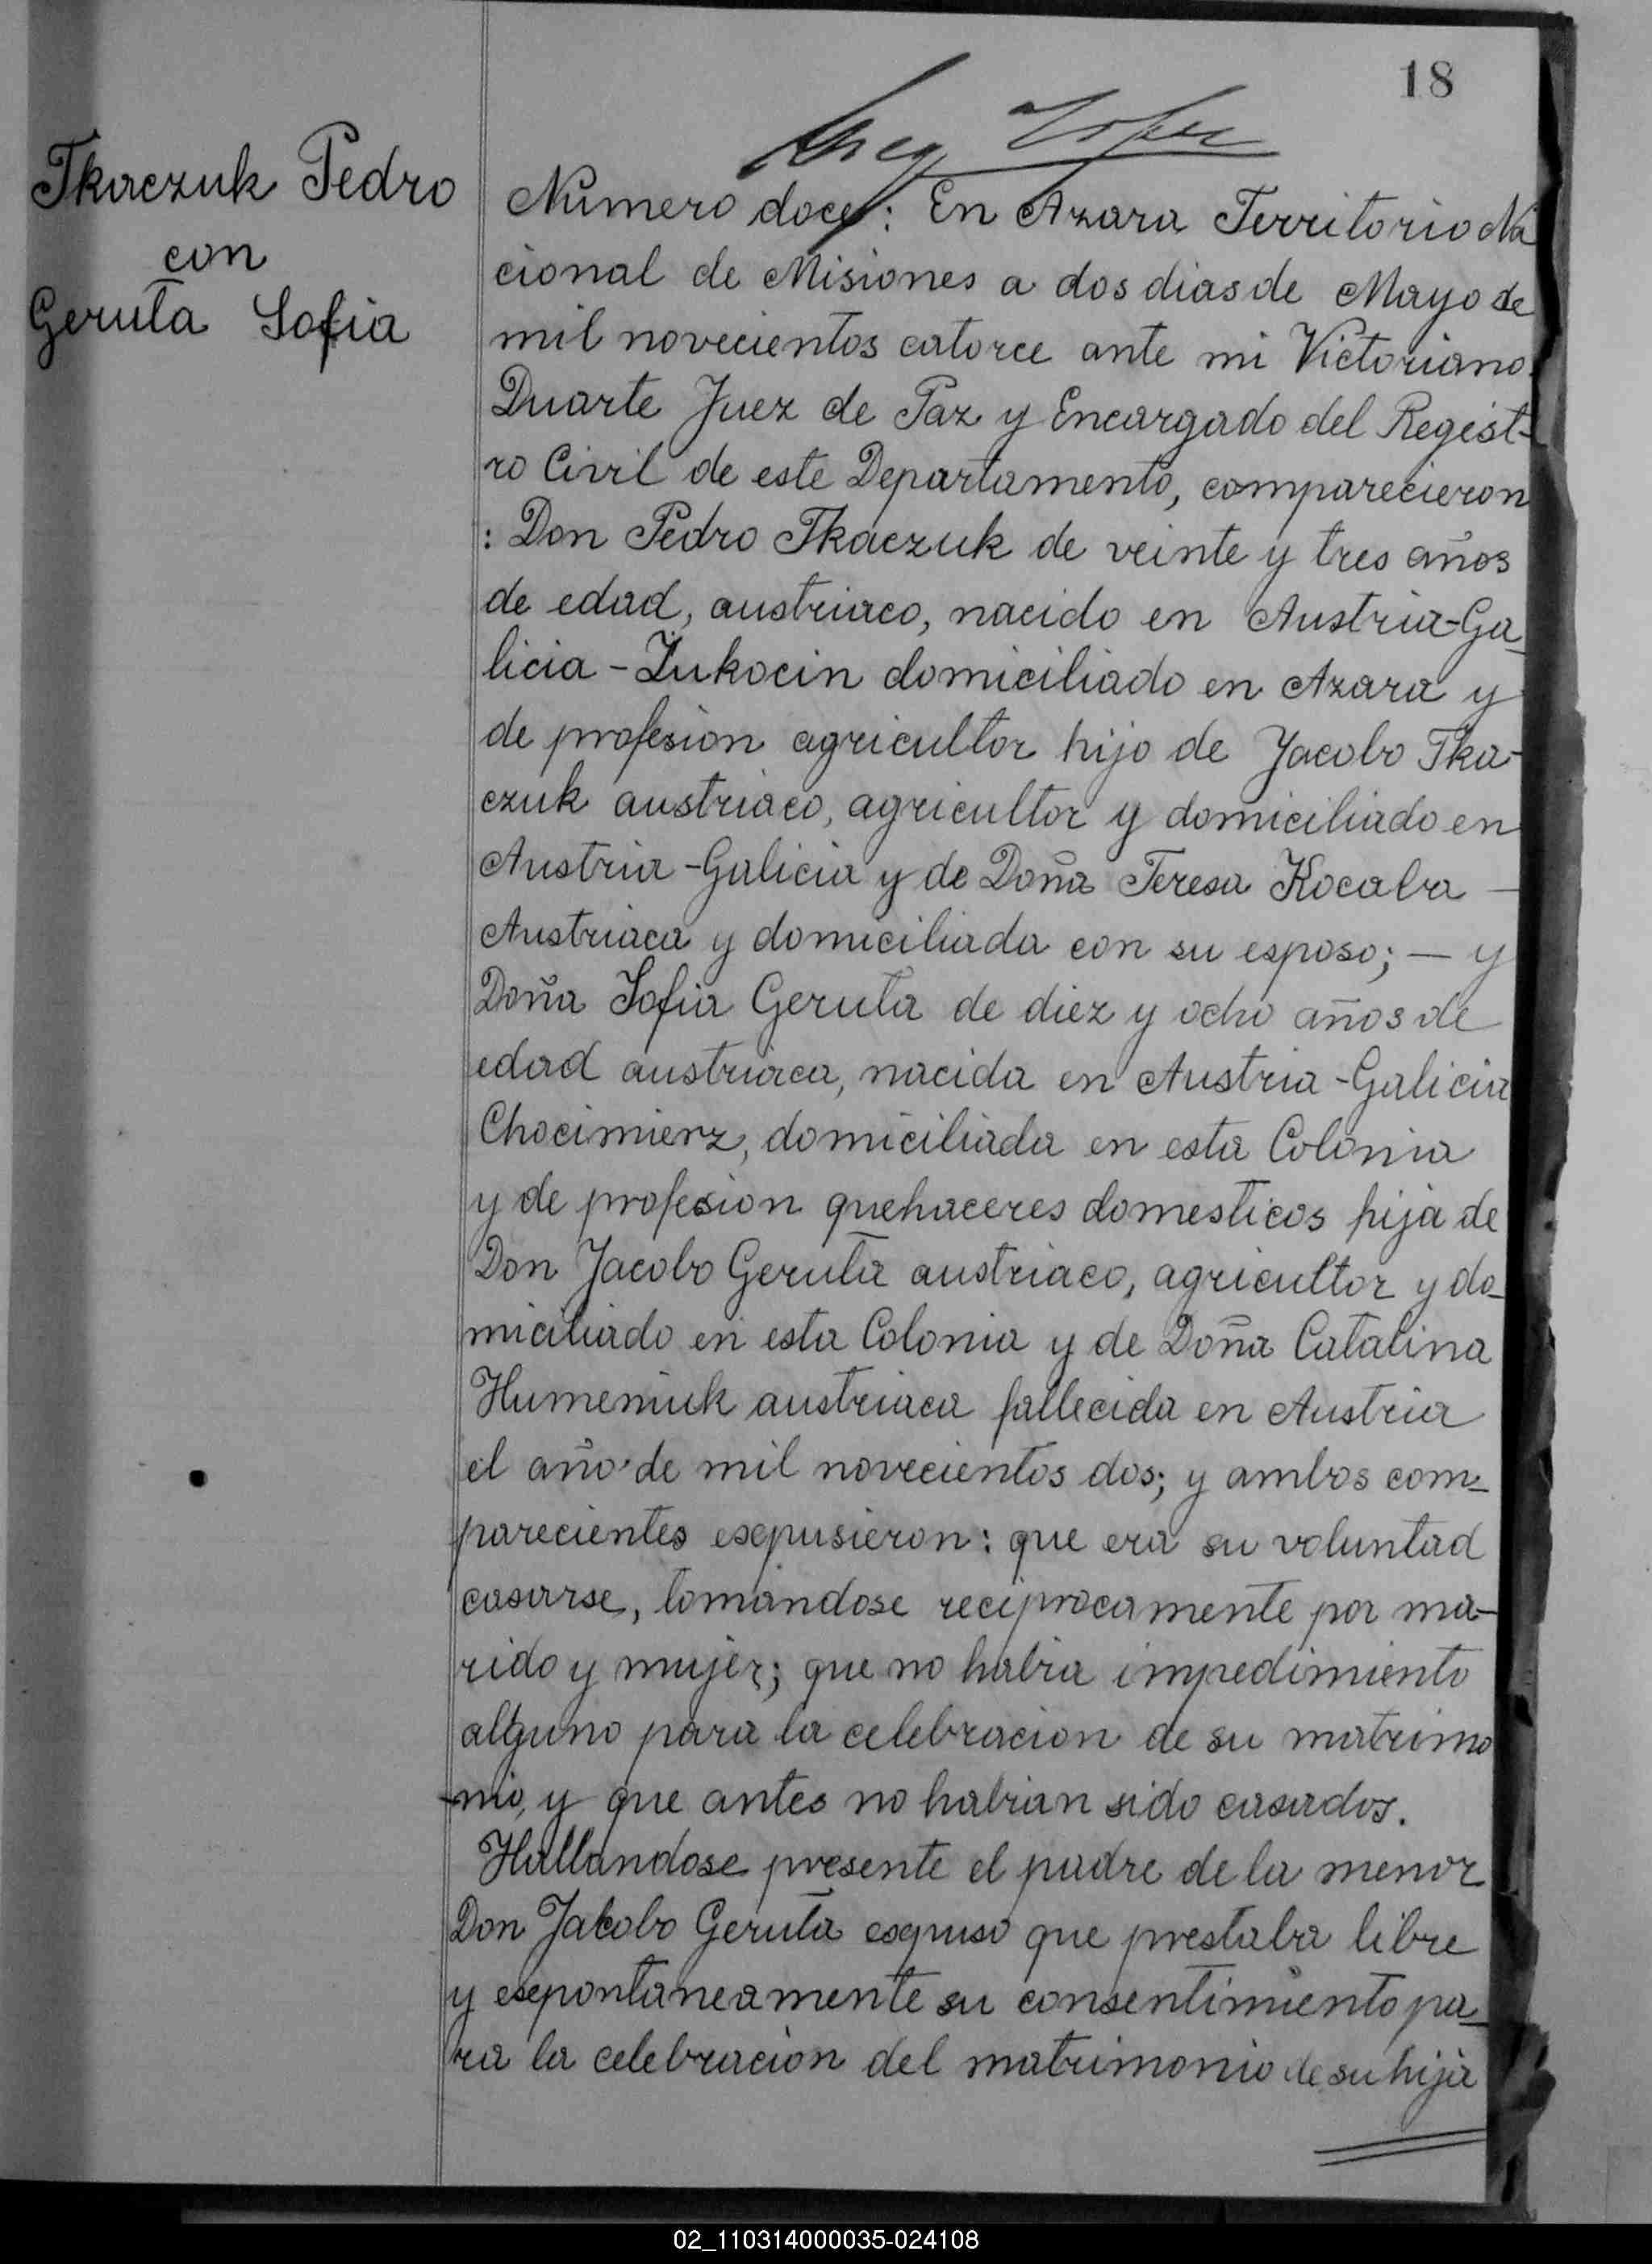 18
Tkaczuk Pedro
con
Geruta Sofia
Número doce: En Azara Territorio Na
cional de Misiones a dos dias de Mayo de
mil novecientos catorce ante mi Victoriano
Duarte Juez de Paz y Encargado del Regist-
ro Civil de este Departamento, comparecieron
: Don Pedro Tkaczuk de veinte y tres años
de edad, austriaco, nacido en Austria-Ga_
licia - Zukocin domiciliado en Azara y
de profesion agricultor hijo de Jacobo Tka-
czuk austriaco, agricultor y domiciliado en
Austria - Galicia y de Doña Teresa Kocaba —
Austriaca y domiciliada con su esposo; — y
Doña Sofia Geruta de diez y ocho años de
edad austriaca, nacida en Austria - Galicia
Chocimierz, domiciliada en esta Colonia
y de profesion quehaceres domesticos hija de
Don Jacobo Geruta austriaco, agricultor y do_
miciliado en esta Colonia y de Doña Catalina
Humeniuk austriaca fallecida en Austria
el año de mil novecientos dos; y ambos com_
parecientes esepusieron: que era su voluntad
casarse, tomandose reciprocamente por ma-
rido y mujer; que no habia impedimiento
alguno para la celebracion de su matrimo
-nio, y que antes no habian sido casados.
Hallandose presente el padre de la menor
Don Jakobo Geruta esepuso que prestaba libre
y esepontaneamente su consentimiento pa_
ra la celebracion del matrimonio de su hija
02_110314000035-024108